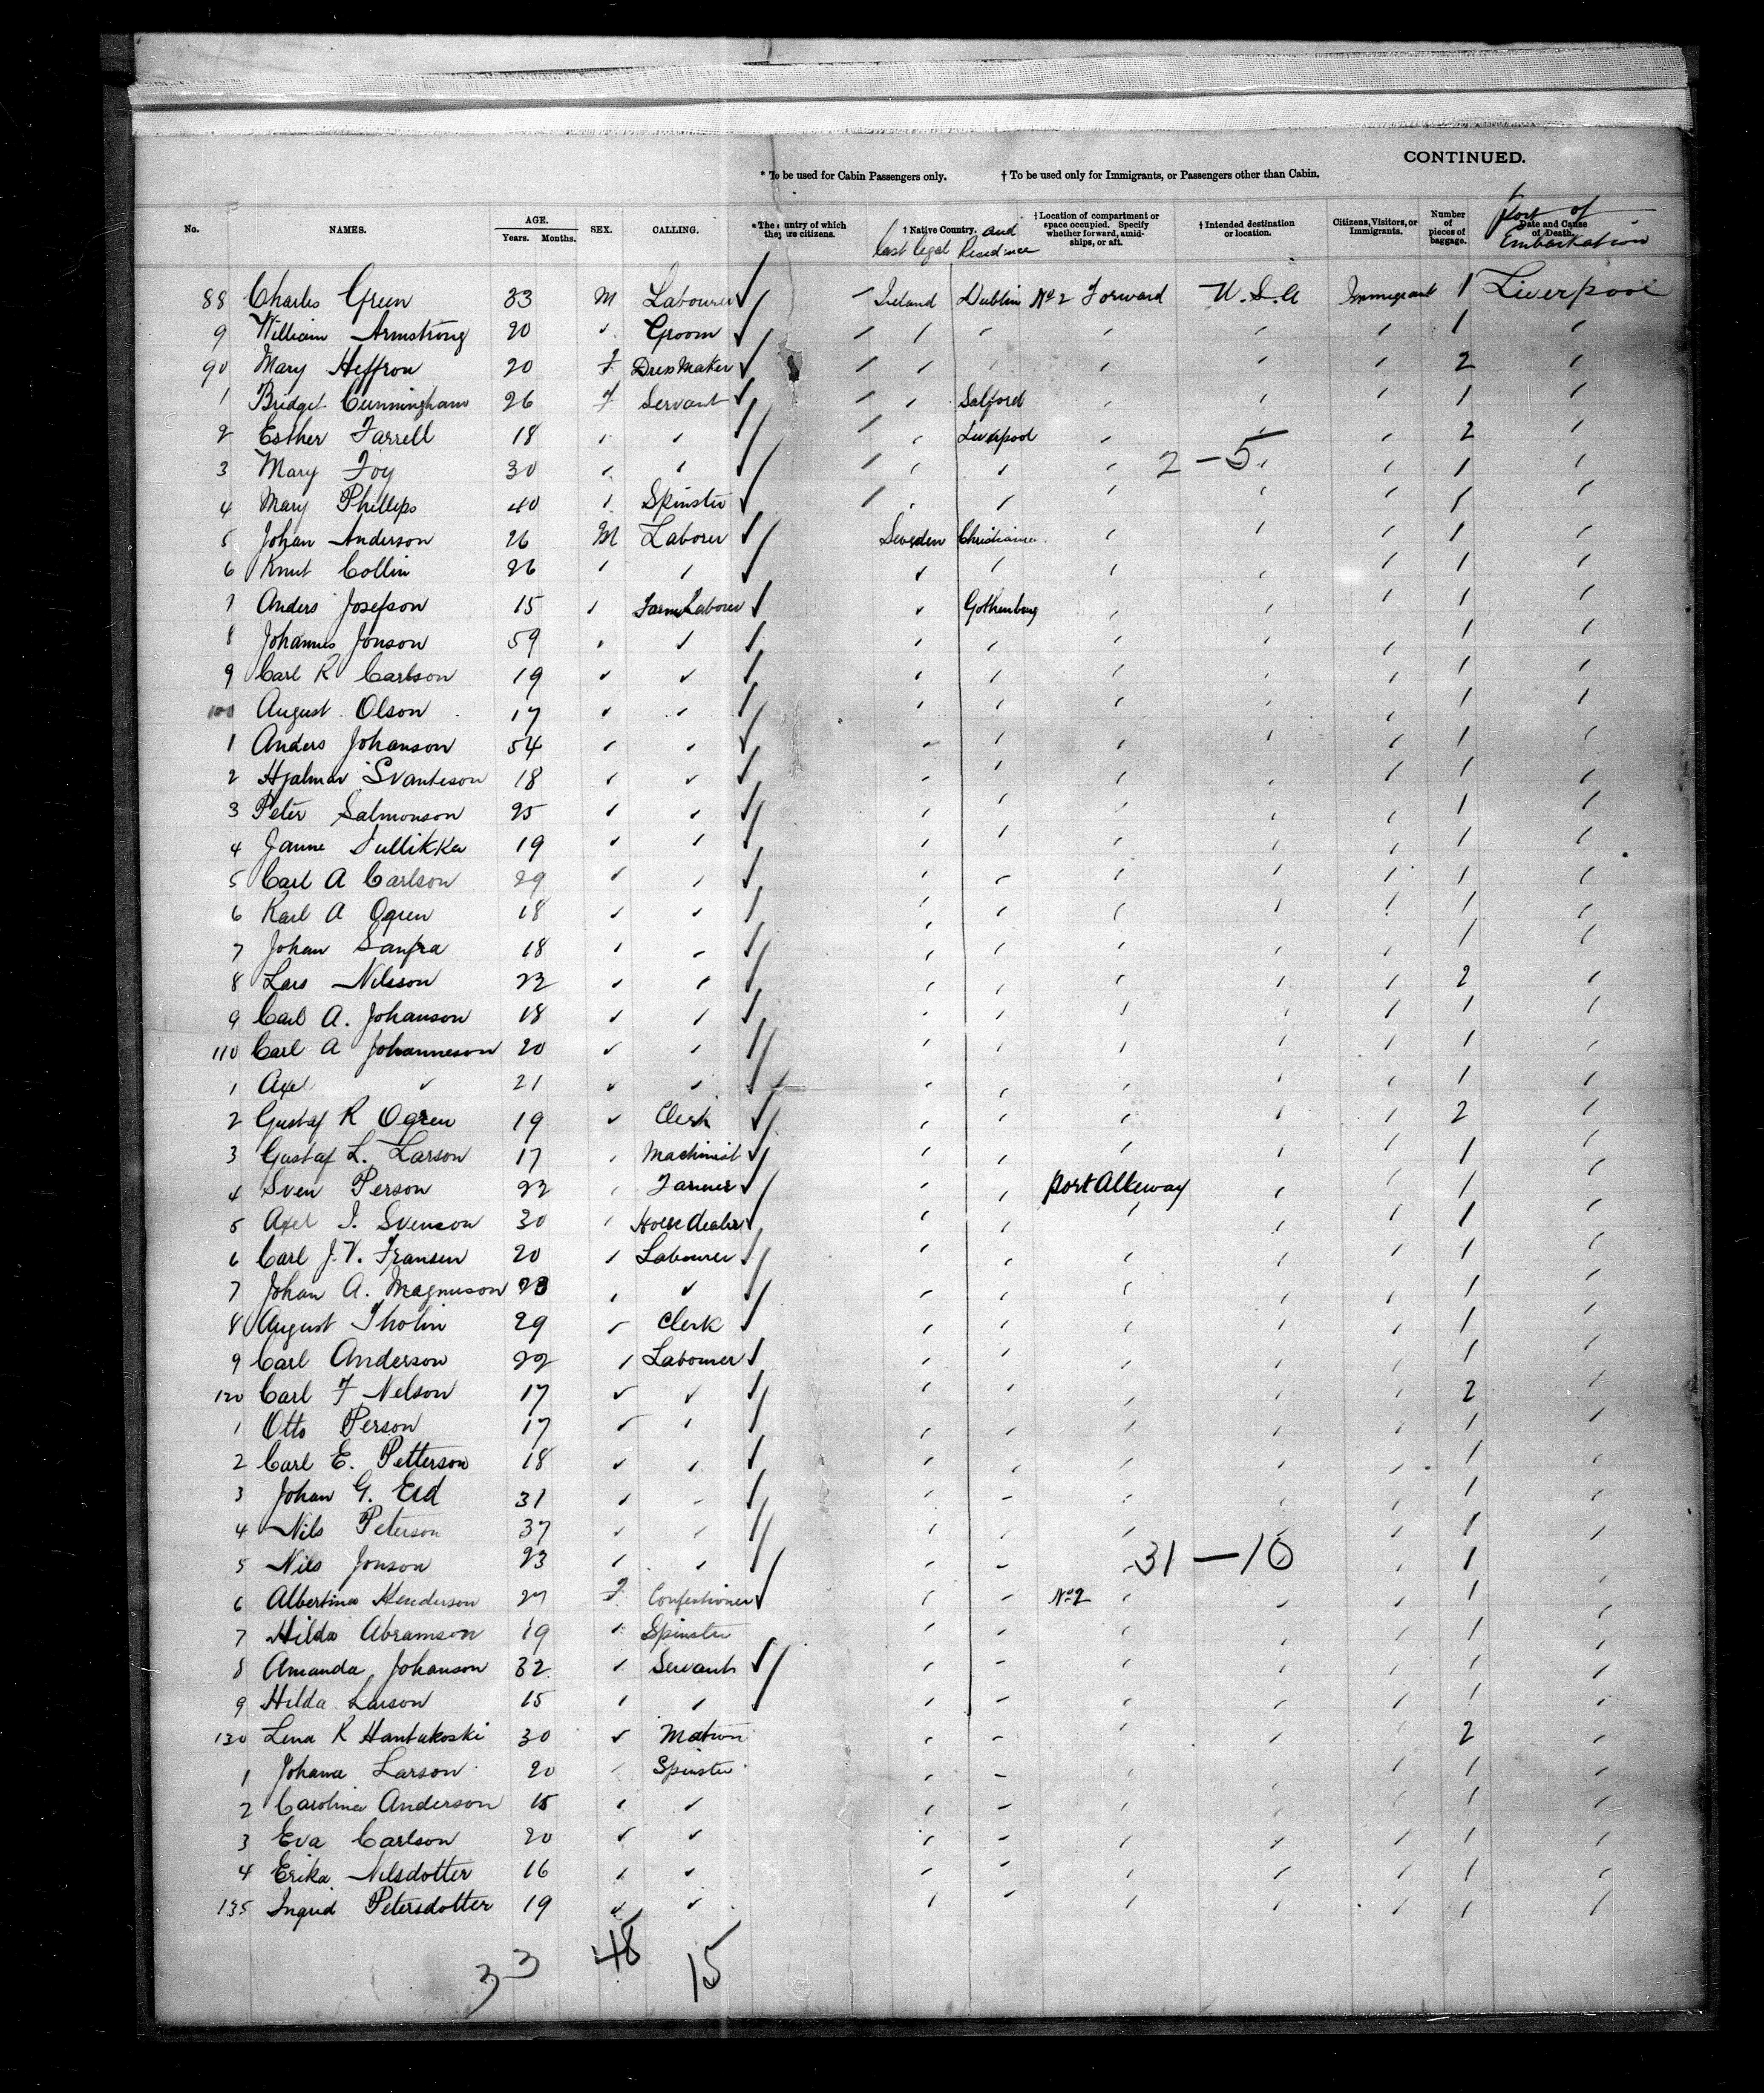 CONTINUED.
* To be used for Cabin Passengers only. † To be used only for Immigrants, or Passengers other than Cabin.
No. NAMES. AGE. Years. Months. SEX. CALLING. * The country of which they are citizens. † Native Country. and last legal Residence † Location of compartment or space occupied. Specify whether forward, amidships, or aft. † Intended destination or location. Citizens, Visitors, or Immigrants. Number of pieces of baggage. Date and Cause of Death. Port of Embarkation
88 Charles Green 33 M Labourer ✓ Ireland Dublin No 2 Forward U.S.A Immigrant 1 Liverpool
9 William Armstrong 20 " Groom ✓ " " " " " " 1 "
90 Mary Heffron 20 F Dress Maker ✓ " " " " " " 2 "
1 Bridget Cunningham 26 F Servant ✓ " " Salford " " " 1 "
2 Esther Farrell 18 " " ✓ " " Liverpool " " " 2 "
3 Mary Foy 30 " " ✓ " " " " 2-5 " " 1 "
4 Mary Phillips 40 " Spinster ✓ " " " " " " 1 "
5 Johan Anderson 26 M Laborer ✓ Sweden Christiania " " " 1 "
6 Knut Collin 26 " " ✓ " " " " " 1 "
7 Anders Josefson 15 " Farm Laborer ✓ " Gothenburg " " " 1 "
8 Johannes Jonson 59 " " ✓ " " " " " 1 "
9 Carl R Carlson 19 " " ✓ " " " " " 1 "
100 August Olson 17 " " ✓ " " " " " 1 "
1 Anders Johanson 54 " " ✓ " " " " " 1 "
2 Hjalmar Svanteson 18 " " ✓ " " " " " 1 "
3 Peter Salmonson 25 " " ✓ " " " " " 1 "
4 Janne Tullikka 19 " " ✓ " " " " " 1 "
5 Carl A Carlson 29 " " ✓ " " " " " 1 "
6 Karl A Ogren 18 " " ✓ " " " " " 1 "
7 Johan 18 " " ✓ " " " " " 1 "
8 Lars Nilsson 22 " " ✓ " " " " " 2 "
9 Carl A. Johanson 18 " " ✓ " " " " " 1 "
110 Carl A Johanneson 20 " " ✓ " " " " " 1 "
1 Axel " 21 " " ✓ " " " " " 1 "
2 Gustaf R Ogren 19 " Clerk ✓ " " " " " 2 "
3 Gustaf L. Larson 17 " Machinist ✓ " " " " " 1 "
4 Sven Person 22 " Farmer ✓ " " Port Alleway " " 1 "
5 Axel I. Svenson 30 " Horse dealer ✓ " " " " " 1 "
6 Carl J. V. Fransen 20 " Labourer ✓ " " " " " 1 "
7 Johan A. Magnuson 23 " " ✓ " " " " " 1 "
8 August Tholin 29 " Clerk ✓ " " " " " 1 "
9 Carl Anderson 22 " Labourer ✓ " " " " " 1 "
120 Carl F Nelson 17 " " ✓ " " " " " 2 "
1 Otto Person 17 " " ✓ " " " " " 1 "
2 Carl E. Petterson 18 " " ✓ " " " " " 1 "
3 Johan G. Eed 31 " " ✓ " " " " " 1 "
4 Nils Peterson 37 " " ✓ " " " " " 1 "
5 Nils Jonson 23 " " ✓ " " " 31-10 " 1
6 Albertina Henderson 27 F Confectioner ✓ " " No 2 " " " 1 "
7 Hilda Abramson 19 " Spinster " " " " " 1 "
8 Amanda Johanson 32 " Servant ✓ " " " " " 1 "
9 Hilda Larson 15 " " ✓ " " " " " 1 "
130 Lena K Hantukoski 30 " Matron " " " " " 2 "
1 Johana Larson 20 " Spinster " " " " " 1 "
2 Carolina Anderson 15 " " " " " " " 1 "
3 Eva Carlson 20 " " " " " " " 1 "
4 Erika Nilsdotter 16 " " " " " " " 1 "
135 Ingrid Petersdotter 19 " " " " " " " 1 "
33 48 15